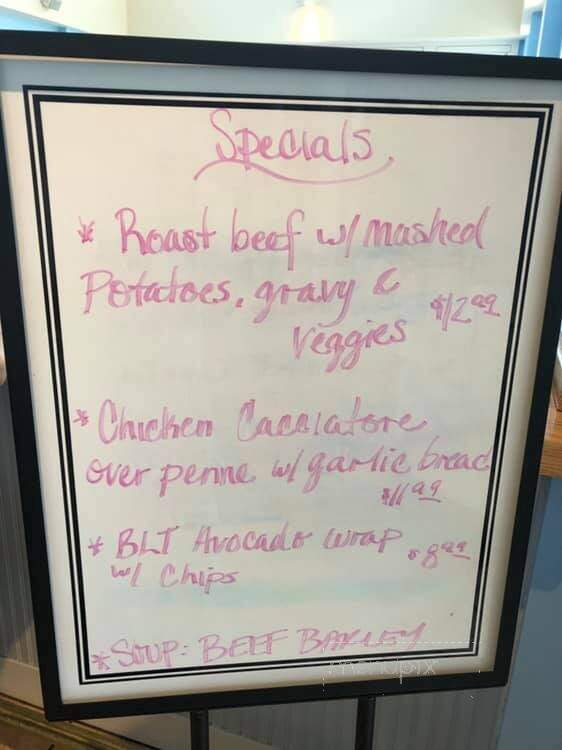 Specials
* Roast beef w/ mashed
Potatoes, gravy &
veggies $12.99
* Chicken Cacciatore
over penne w/ garlic bread
$11.99
* BLT Avocado wrap $8.99
w/ Chips
* SOUP: BEEF BARLEY
menupix